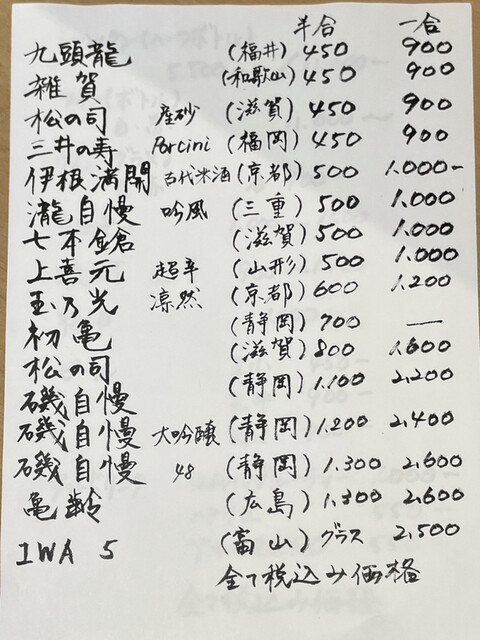 半合 一合
九頭龍 (福井) 450 900
雑賀 (和歌山) 450 900
松の司 産砂 (滋賀) 450 900
三井の寿 Porcini (福岡) 450 900
伊根満開 古代米酒 (京都) 500 1.000-
瀧自慢 吟風 (三重) 500 1.000
七本鎗 (滋賀) 500 1.000
上喜元 超辛 (山形) 500 1.000
玉乃光 凛然 (京都) 600 1.200
初亀 (静岡) 700 —
松の司 (滋賀) 800 1.600
磯自慢 (静岡) 1.100 2.200
磯自慢 大吟醸 (静岡) 1.200 2.400
磯自慢 48 (静岡) 1.300 2.600
亀齢 (広島) 1.300 2.600
IWA 5 (富山) グラス 2.500
全て税込み価格